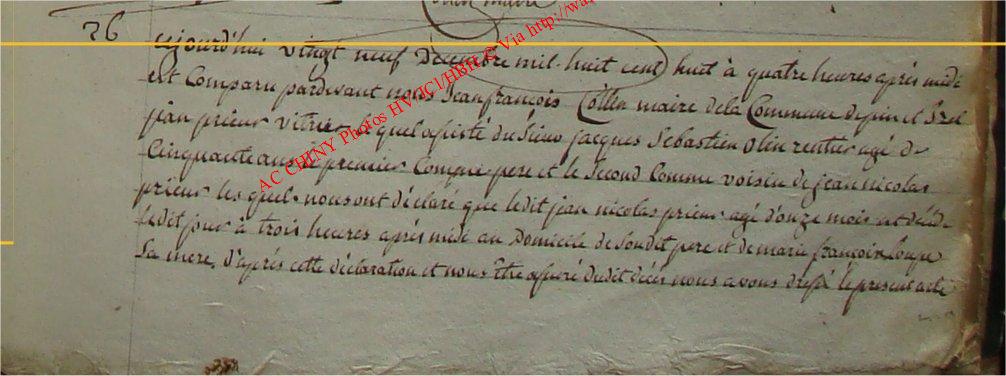 Collin maire
26 cejourd'hui vingt neuf Decembre mil-huit cent huit à quatre heures après midi
est Comparu pardevant nous Jean françois Collin maire dela Commune de pin et Izel
jean prieur vitrier le quel assisté du Sieur jacques Sebastien Olin rentier agé de
Cinquante ans le premier Comme pere et le Second Comme voisin de jean nicolas
prieur les quels nous ont déclaré que ledit jean nicolas prieur agé d'onze mois est décédé
ledit jour à trois heures après midi au Domicile de Sondit pere et de marie françoise
Sa mere, D'après cette déclaration et nous être assuré dudit décès nous avons dressé le present acte
AC CHINY Photos HV/JCl/HBH.G Via http://wa